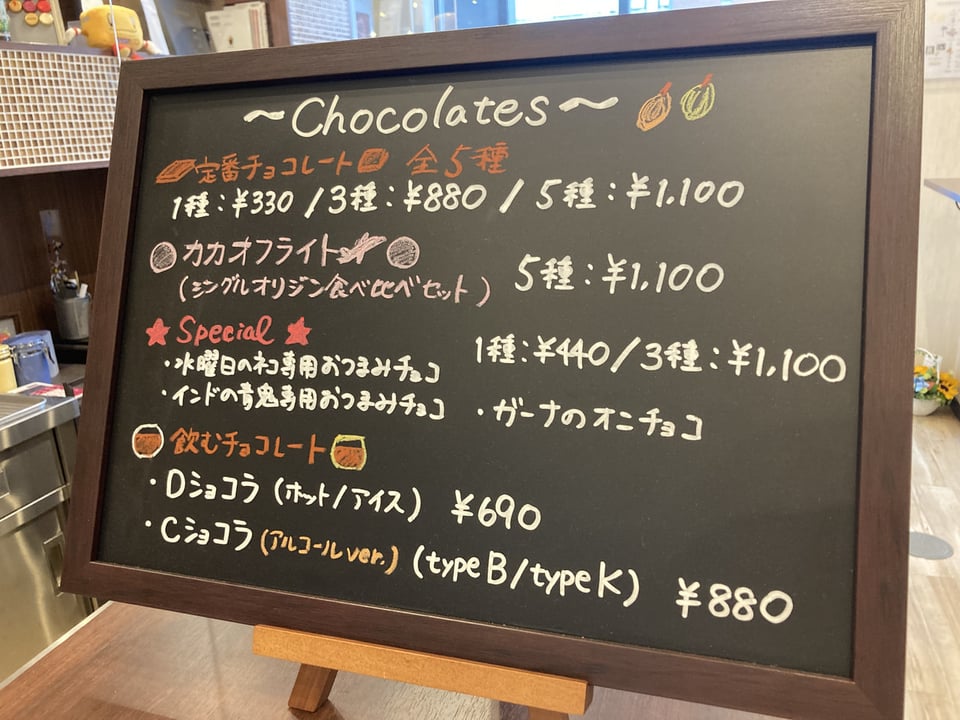 ～Chocolates～
定番チョコレート 全5種
1種:¥330 / 3種:¥880 / 5種:¥1.100
カカオフライト
(シングルオリジン食べ比べセット) 5種:¥1,100
★ Special ★
1種:¥440 / 3種:¥1,100
・水曜日のネコ専用おつまみチョコ
・インドの青鬼専用おつまみチョコ ・ガーナのオニチョコ
飲むチョコレート
・Dショコラ (ホット/アイス) ¥690
・Cショコラ (アルコールver.) (typeB/typeK) ¥880